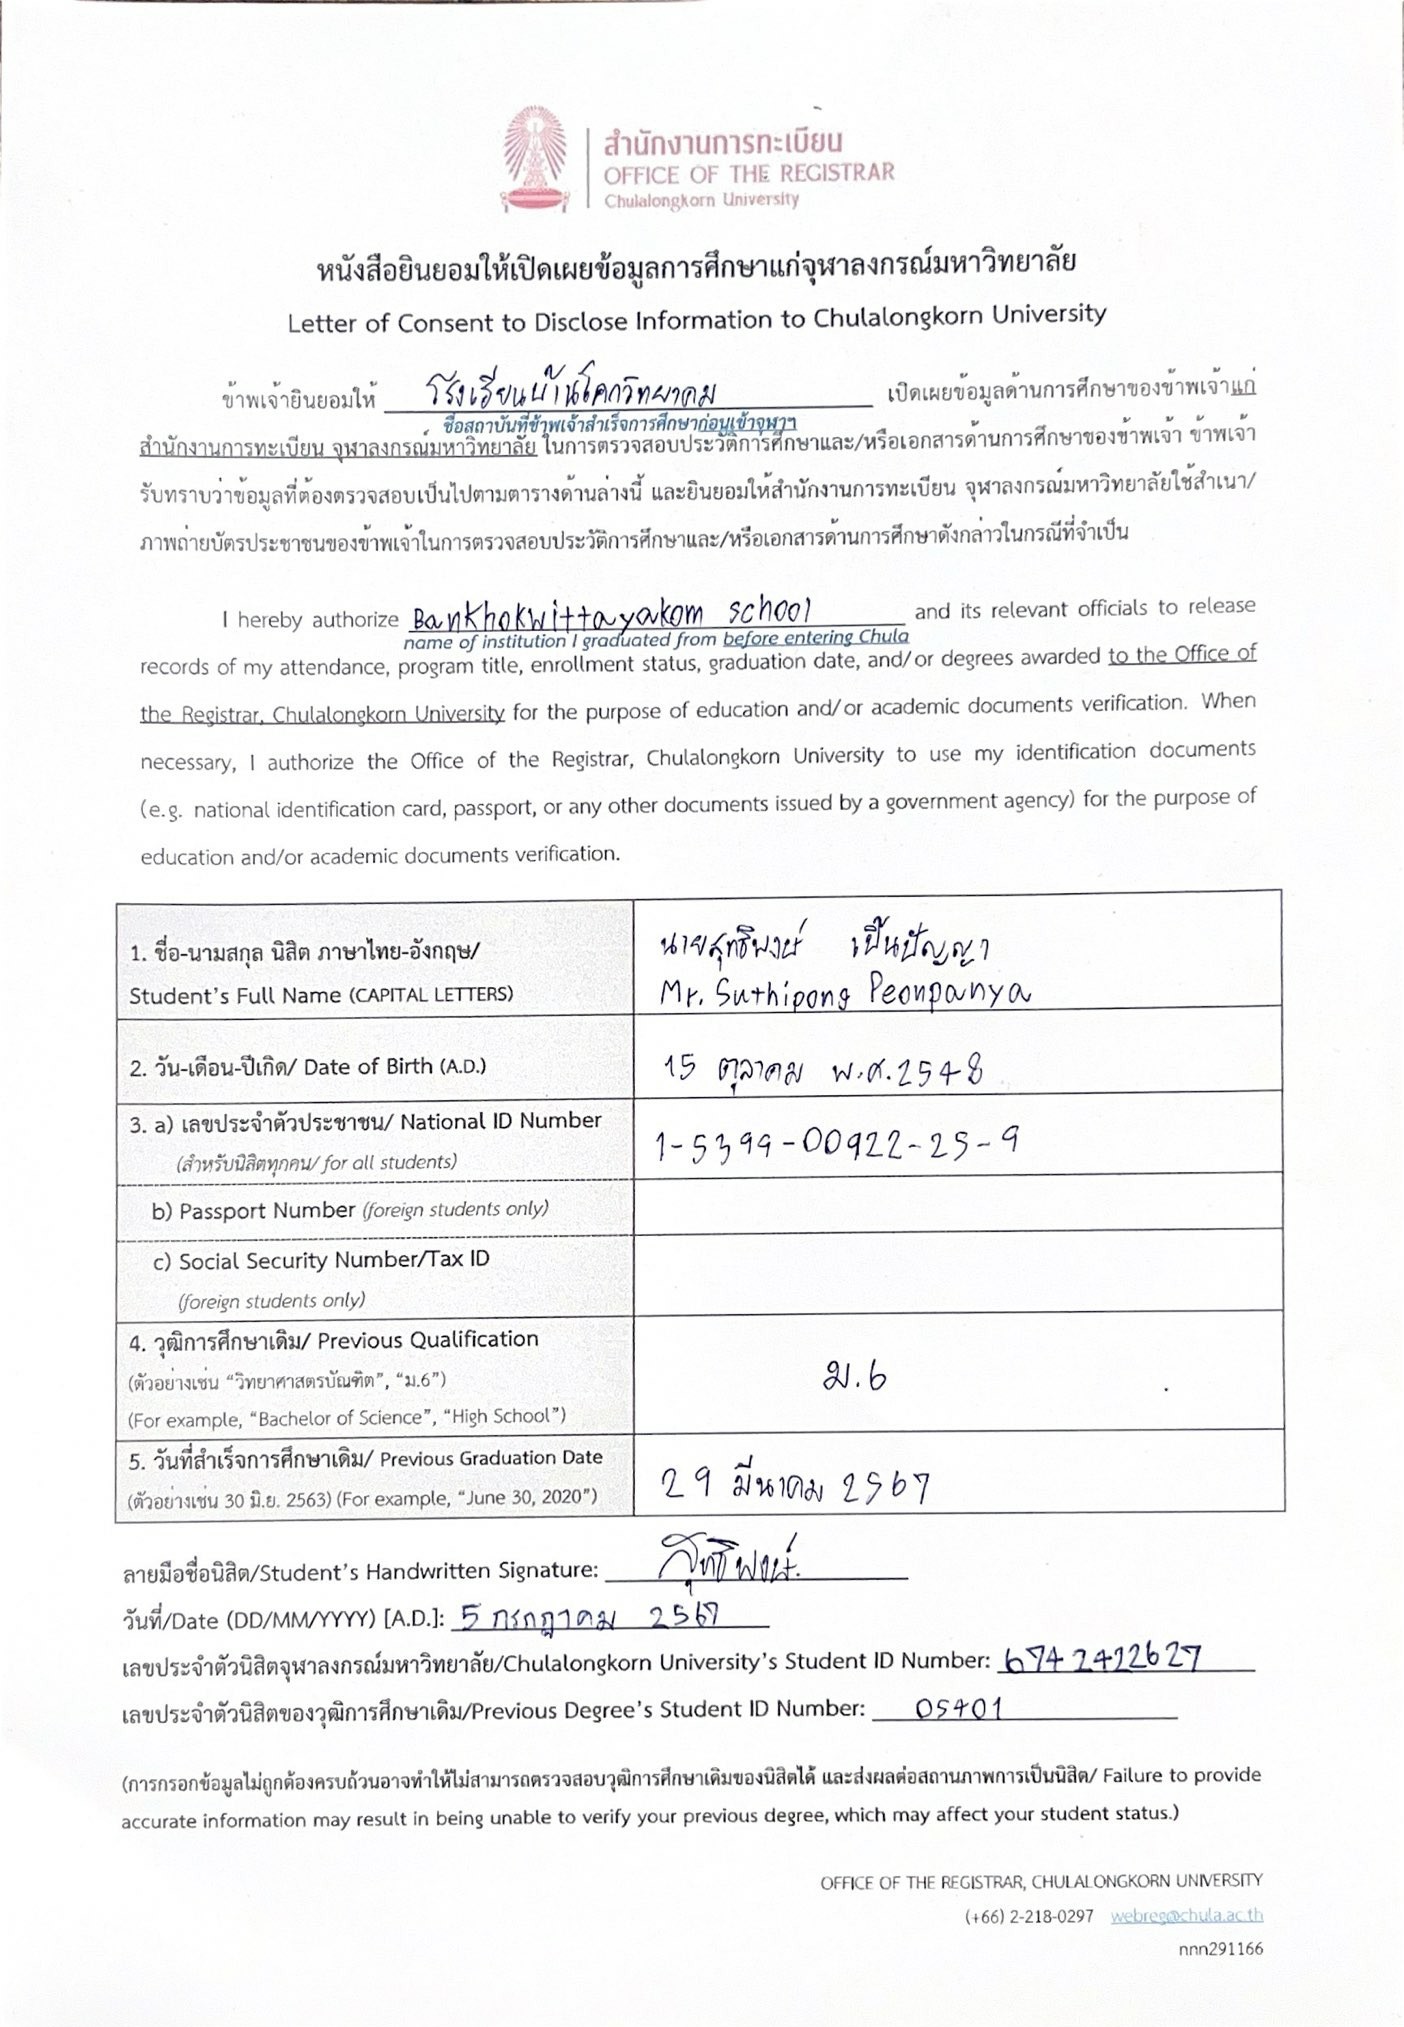 สำนักงานการทะเบียน
OFFICE OF THE REGISTRAR
Chulalongkorn University
หนังสือยินยอมให้เปิดเผยข้อมูลการศึกษาแก่จุฬาลงกรณ์มหาวิทยาลัย
Letter of Consent to Disclose Information to Chulalongkorn University
ข้าพเจ้ายินยอมให้ โรงเรียนบ้านโคกวิทยาคม เปิดเผยข้อมูลด้านการศึกษาของข้าพเจ้าแก่
ชื่อสถาบันที่ข้าพเจ้าสำเร็จการศึกษาก่อนเข้าจุฬาฯ
สำนักงานการทะเบียน จุฬาลงกรณ์มหาวิทยาลัย ในการตรวจสอบประวัติการศึกษาและ/หรือเอกสารด้านการศึกษาของข้าพเจ้า ข้าพเจ้า
รับทราบว่าข้อมูลที่ต้องตรวจสอบเป็นไปตามตารางด้านล่างนี้ และยินยอมให้สำนักงานการทะเบียน จุฬาลงกรณ์มหาวิทยาลัยใช้สำเนา/
ภาพถ่ายบัตรประชาชนของข้าพเจ้าในการตรวจสอบประวัติการศึกษาและ/หรือเอกสารด้านการศึกษาดังกล่าวในกรณีที่จำเป็น
I hereby authorize Bankhokwittayakom school and its relevant officials to release
name of institution I graduated from before entering Chula
records of my attendance, program title, enrollment status, graduation date, and/or degrees awarded to the Office of
the Registrar, Chulalongkorn University for the purpose of education and/or academic documents verification. When
necessary, I authorize the Office of the Registrar, Chulalongkorn University to use my identification documents
(e.g. national identification card, passport, or any other documents issued by a government agency) for the purpose of
education and/or academic documents verification.
1. ชื่อ-นามสกุล นิสิต ภาษาไทย-อังกฤษ/
Student's Full Name (CAPITAL LETTERS)
นายสุทธิพงษ์ เปี้นปัญญา
Mr. Suthipong Peonpanya
2. วัน-เดือน-ปีเกิด/ Date of Birth (A.D.)
15 ตุลาคม พ.ศ.2548
3. a) เลขประจำตัวประชาชน/ National ID Number
(สำหรับนิสิตทุกคน/ for all students)
1-5399-00922-25-9
b) Passport Number (foreign students only)
c) Social Security Number/Tax ID
(foreign students only)
4. วุฒิการศึกษาเดิม/ Previous Qualification
(ตัวอย่างเช่น "วิทยาศาสตรบัณฑิต", "ม.6")
(For example, "Bachelor of Science", "High School")
ม.6
5. วันที่สำเร็จการศึกษาเดิม/ Previous Graduation Date
(ตัวอย่างเช่น 30 มิ.ย. 2563) (For example, "June 30, 2020")
29 มีนาคม 2567
ลายมือชื่อนิสิต/Student's Handwritten Signature: สุทธิพงษ์
วันที่/Date (DD/MM/YYYY) [A.D.]: 5 กรกฎาคม 2567
เลขประจำตัวนิสิตจุฬาลงกรณ์มหาวิทยาลัย/Chulalongkorn University's Student ID Number: 6742422627
เลขประจำตัวนิสิตของวุฒิการศึกษาเดิม/Previous Degree's Student ID Number: 05401
(การกรอกข้อมูลไม่ถูกต้องครบถ้วนอาจทำให้ไม่สามารถตรวจสอบวุฒิการศึกษาเดิมของนิสิตได้ และส่งผลต่อสถานภาพการเป็นนิสิต/ Failure to provide
accurate information may result in being unable to verify your previous degree, which may affect your student status.)
OFFICE OF THE REGISTRAR, CHULALONGKORN UNIVERSITY
(+66) 2-218-0297 webreg@chula.ac.th
nnn291166